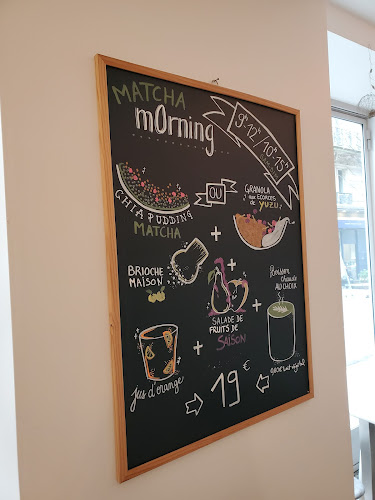 MATCHA
mOrning
9h-12h / 10h-15h
CHIA PUDDING
MATCHA
OU
GRANOLA
aux ECORCES
de YUZU
+
BRIOCHE
MAISON
+
SALADE DE
FRUITS DE
SAISON
+
Boisson
chaude
AU CHOIX
jus d'orange
+
19 €